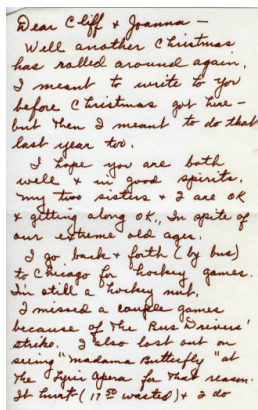 Dear Cliff & Joanna —
Well another Christmas
has rolled around again.
I meant to write to you
before Christmas got here —
but then I meant to do that
last year too.
I hope you are both
well & in good spirits.
My two sisters & I are OK
& getting along OK, In spite of
our extreme old ages.
I go back & forth (by bus)
to Chicago for hockey games.
I'm still a hockey nut.
I missed a couple games
because of The Bus Drivers'
strike. I also lost out on
seeing "Madama Butterfly" at
The Lyric Opera for That reason.
It hurt (17.50 wasted) & I do